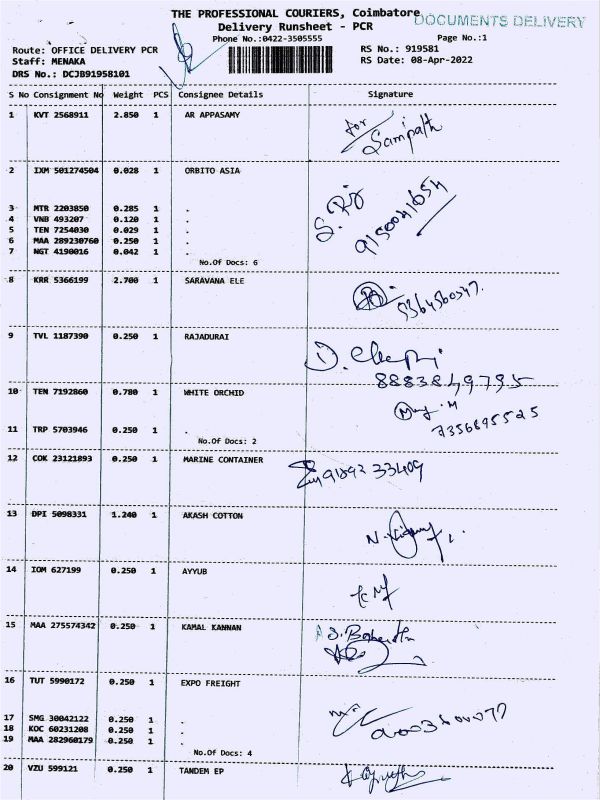 THE PROFESSIONAL COURIERS, Coimbatore
DOCUMENTS DELIVERY
Delivery Runsheet - PCR
Phone No.:0422-3505555
Page No.:1
Route: OFFICE DELIVERY PCR
RS No.: 919581
Staff: MENAKA
RS Date: 08-Apr-2022
DRS No.: DCJB91958101
S No Consignment No Weight PCS Consignee Details Signature
1 KVT 2568911 2.850 1 AR APPASAMY
for Sampath
2 IXM 501274504 0.028 1 ORBITO ASIA
3 MTR 2203850 0.285 1 .
4 VNB 493207 0.120 1 .
5 TEN 7254030 0.029 1 .
6 MAA 289230760 0.250 1 .
7 NGT 4190016 0.042 1 .
No.Of Docs: 6
8 KRR 5366199 2.700 1 SARAVANA ELE
9 TVL 1187390 0.250 1 RAJADURAI
10 TEN 7192860 0.780 1 WHITE ORCHID
11 TRP 5703946 0.250 1 .
No.Of Docs: 2
12 COK 23121893 0.250 1 MARINE CONTAINER
13 DPI 5098331 1.240 1 AKASH COTTON
14 IOM 627199 0.250 1 AYYUB
15 MAA 275574342 0.250 1 KAMAL KANNAN
16 TUT 5990172 0.250 1 EXPO FREIGHT
17 SMG 30042122 0.250 1 .
18 KOC 60231208 0.250 1 .
19 MAA 282960179 0.250 1 .
No.Of Docs: 4
20 VZU 599121 0.250 1 TANDEM EP